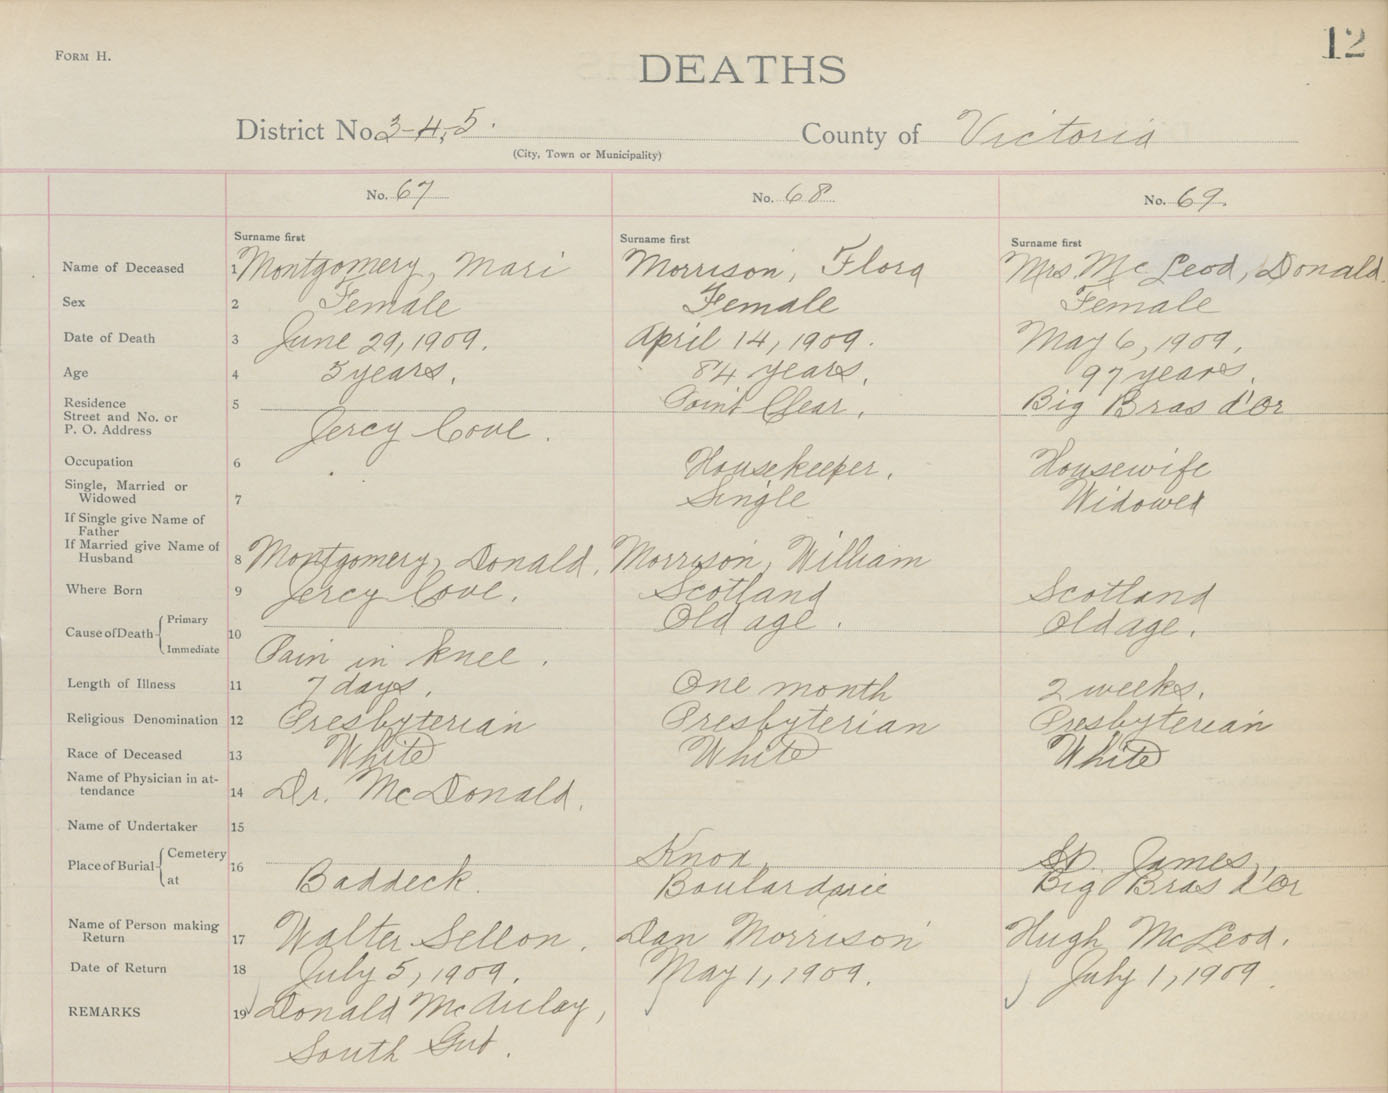 12
FORM H.
DEATHS
District No. 3-4,-5. County of Victoria
(City, Town or Municipality)
No. 67 No. 68 No. 69.
Surname first Surname first Surname first
Name of Deceased 1 Montgomery, Mari Morrison, Flora Mrs. McLeod, Donald.
Sex 2 Female Female Female
Date of Death 3 June 29, 1909. April 14, 1909. May 6, 1909.
Age 4 years. 84 years. 97 years.
Residence 5 Point Clear. Big Bras d'Or
Street and No. or
P. O. Address Jercy Cove.
Occupation 6 Housekeeper. Housewife
Single, Married or
Widowed 7 Single Widowed
If Single give Name of
Father
If Married give Name of
Husband 8 Montgomery, Donald. Morrison, William
Where Born 9 Jercy Cove. Scotland Scotland
Cause of Death Primary 10 Old age. Old age.
Immediate Pain in knee.
Length of Illness 11 7 days. One month 2 weeks.
Religious Denomination 12 Presbyterian Presbyterian Presbyterian
Race of Deceased 13 White White White
Name of Physician in at-
tendance 14 Dr. McDonald.
Name of Undertaker 15
Place of Burial Cemetery 16 Knox, St. James,
at Baddeck. Boulardarie Big Bras d'Or
Name of Person making
Return 17 Walter Sellon. Dan Morrison Hugh McLeod.
Date of Return 18 July 5, 1909. May 1, 1909. July 1, 1909.
REMARKS 19 Donald McAulay,
South Gut.